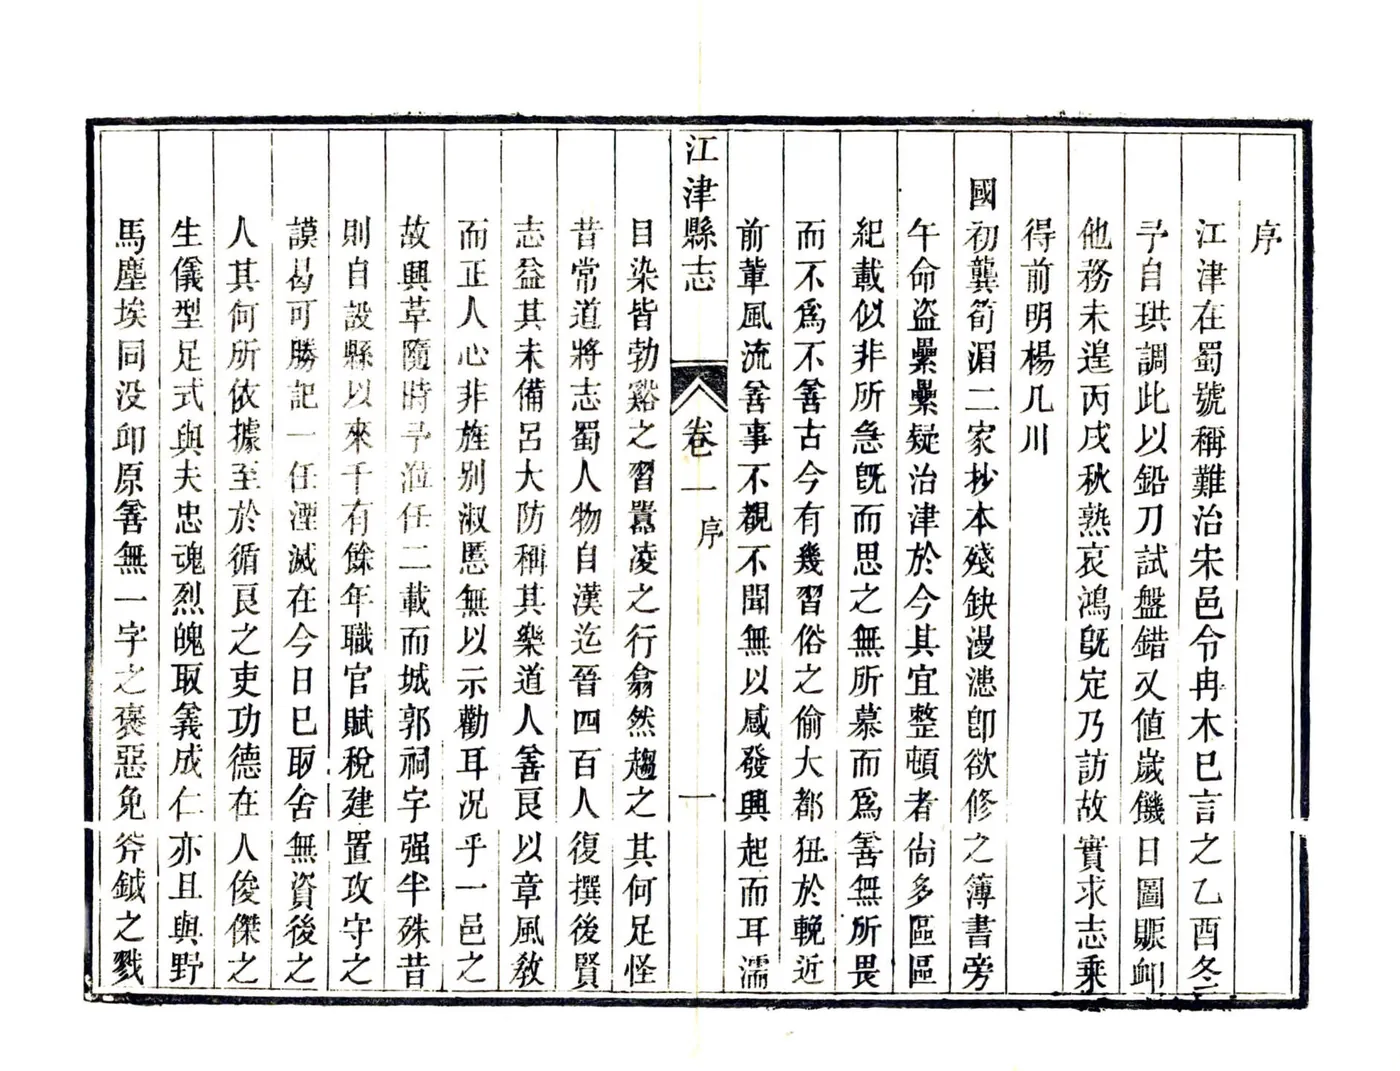 序
江津在蜀號稱難治宋邑令冉木巳言之乙酉冬
予自珙調此以鉛刀試盤錯又值歲饑日圖賑卹
他務未遑丙戌秋熟哀鴻旣定乃訪故實求志乘
得前明楊几川
國初龔荀湄二家抄本殘缺漫漶卽欲修之簿書旁
午命盜纍纍疑治津於今其宜整頓者尙多區區
紀載似非所急旣而思之無所慕而爲善無所畏
而不爲不善古今有幾習俗之偷大都狃於輓近
前輩風流善事不覩不聞無以感發興起而耳濡
江津縣志
卷一
序
一
目染皆勃谿之習囂凌之行翕然趨之其何足怪
昔常道將志蜀人物自漢迄晉四百人復撰後賢
志益其未備呂大防稱其樂道人善艮以章風敎
而正人心非旌別淑慝無以示勸耳況乎一邑之
故興革隨時予涖任二載而城郭祠宇强半殊昔
則自設縣以來千有餘年職官賦稅建置攻守之
謨曷可勝記一任湮滅在今日巳取舍無資後之
人其何所依據至於循艮之吏功德在人俊傑之
生儀型足式與夫忠魂烈魄取義成仁亦且與野
馬塵埃同没卬原善無一字之褒惡免斧鉞之戮